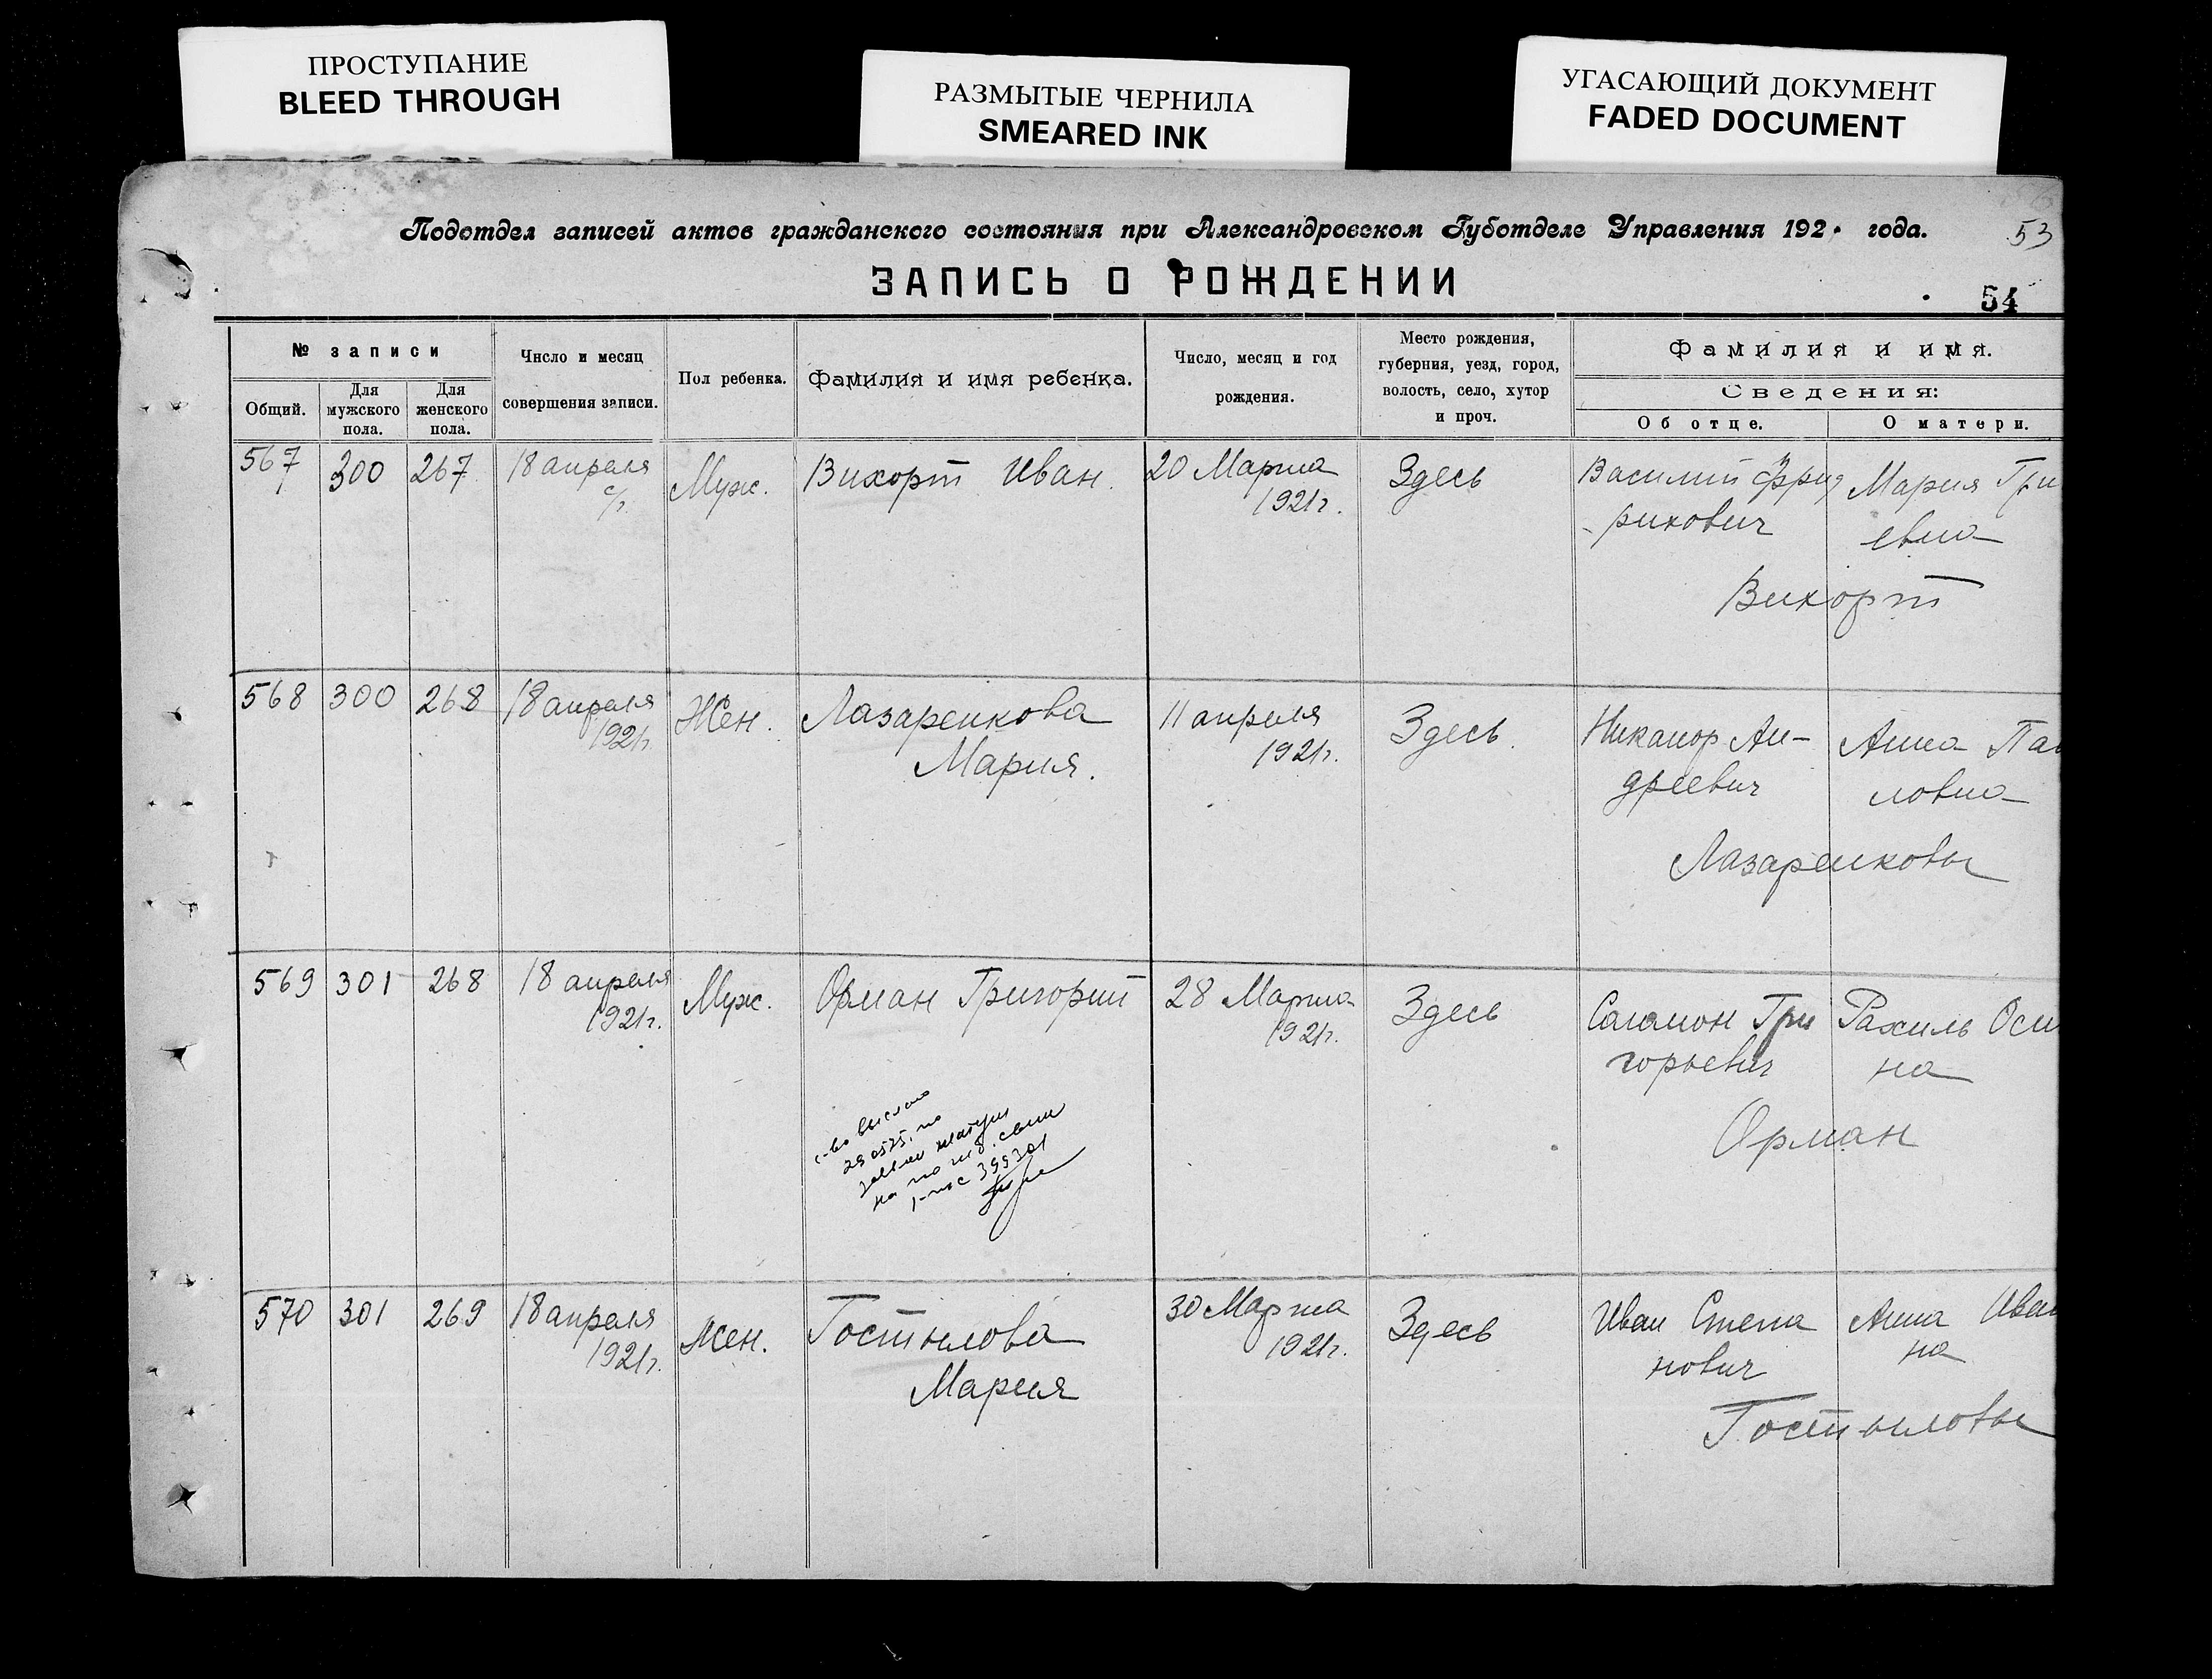 ПРОСТУПАНИЕ
BLEED THROUGH
РАЗМЫТЫЕ ЧЕРНИЛА
SMEARED INK
УГАСАЮЩИЙ ДОКУМЕНТ
FADED DOCUMENT
Подотдел записей актов гражданского состояния при Александровском Губотделе Управления 192 года.
53
ЗАПИСЬ О РОЖДЕНИИ
54
№ записи
Общий.
Для мужского пола.
Для женского пола.
Число и месяц
совершения записи.
Пол ребенка.
Фамилия и имя ребенка.
Число, месяц и год
рождения.
Место рождения,
губерния, уезд, город,
волость, село, хутор
и проч.
Фамилия и имя.
Сведения:
Об отце.
О матери.
567 300 267 18 апреля Муж. Вихорт Иван. 20 Марта Здесь Василий Фрид Мария Гри
с/г. 1921г. рихович евна
Вихорт
568 300 268 18 апреля Жен. Лазаренкова 11 апреля Здесь. Никанор Ан- Анна Пав
1921г. Мария. 1921г. дреевич ловна
Лазаренковы
569 301 268 18 апреля Муж. Орман Григорий 28 Марта Здесь Соломон Гри Рахиль Оси
1921г. 1921г. горьевич на
Орман
399301
570 301 269 18 апреля Жен. Гостылова 30 Марта Здесь Иван Степа Анна Иван
1921г. Мария 1921г. нович на
Гостыловы